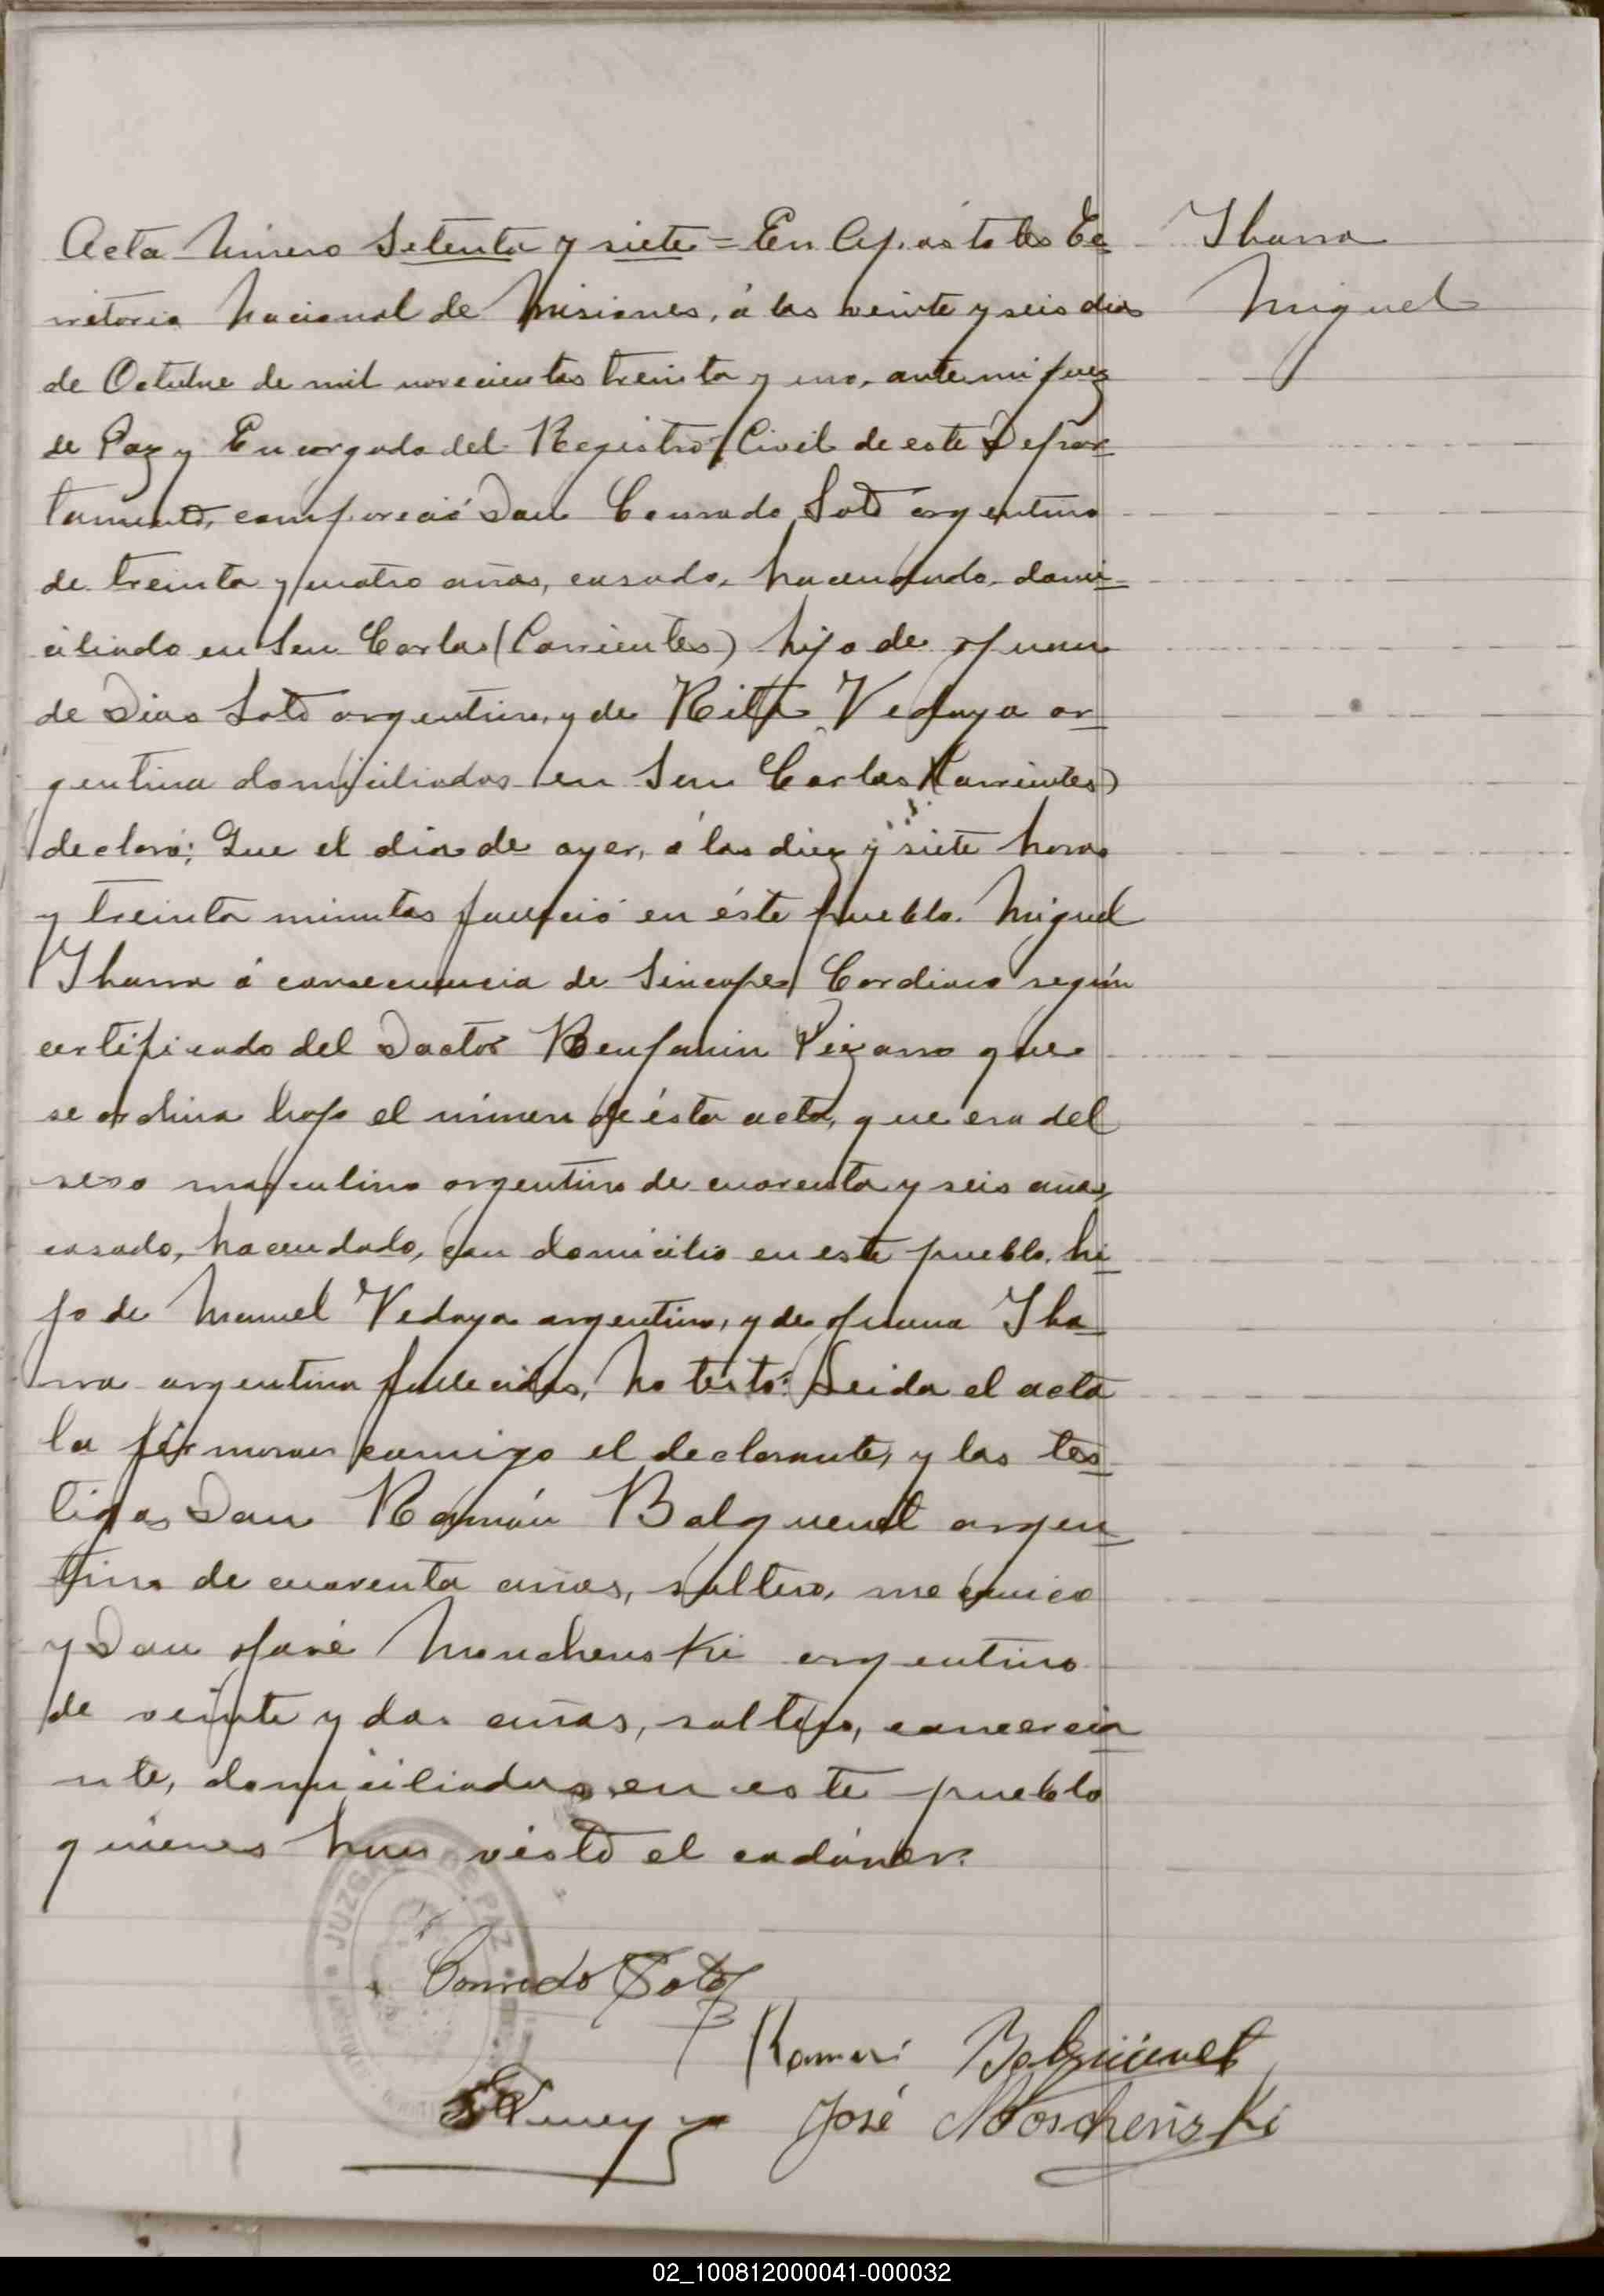 Acta Número Setenta y siete = En Apóstoles Te
Ibarra
rritorio Nacional de Misiones, á los veinte y seis dias
Miguel
de Octubre de mil novecientos treinta y uno, ante mi Juez
de Paz y Encargado del Registro Civil de este Depar
tamento, compareció Don Conrado Soto argentino
de treinta y cuatro años, casado, hacendado, domi
ciliado en San Carlos (Corrientes) hijo de Juan
de Dios Soto argentino, y de Rita Vedoya ar
gentina domiciliados en San Carlos (Corrientes)
declaró: Que el dia de ayer, á las diez y siete horas
y treinta minutos falleció en éste pueblo. Miguel
Ibarra á consecuencia de Sincope Cardiaco según
certificado del Doctor Benjamin Pizarro que
se archiva bajo el número de ésta acta, que era del
sexo masculino argentino de cuarenta y seis años,
casado, hacendado, con domicilio en este pueblo, hi
jo de Manuel Vedoya argentino, y de Juana Iba
rra argentina fallecidos, No testó: Leida el acta
la firmaron conmigo el declarante, y los tes
tigos Don Ramón Balguenet argen
tino de cuarenta años, soltero, mecanico
y Don José Monchenski argentino
de veinte y dos años, soltero, comercia
nte, domiciliados en este pueblo
quienes han visto el cadáver.
JUZGADO DE PAZ
Conrado Soto
Ramón Balguenet
José Moschenski
02_100812000041-000032